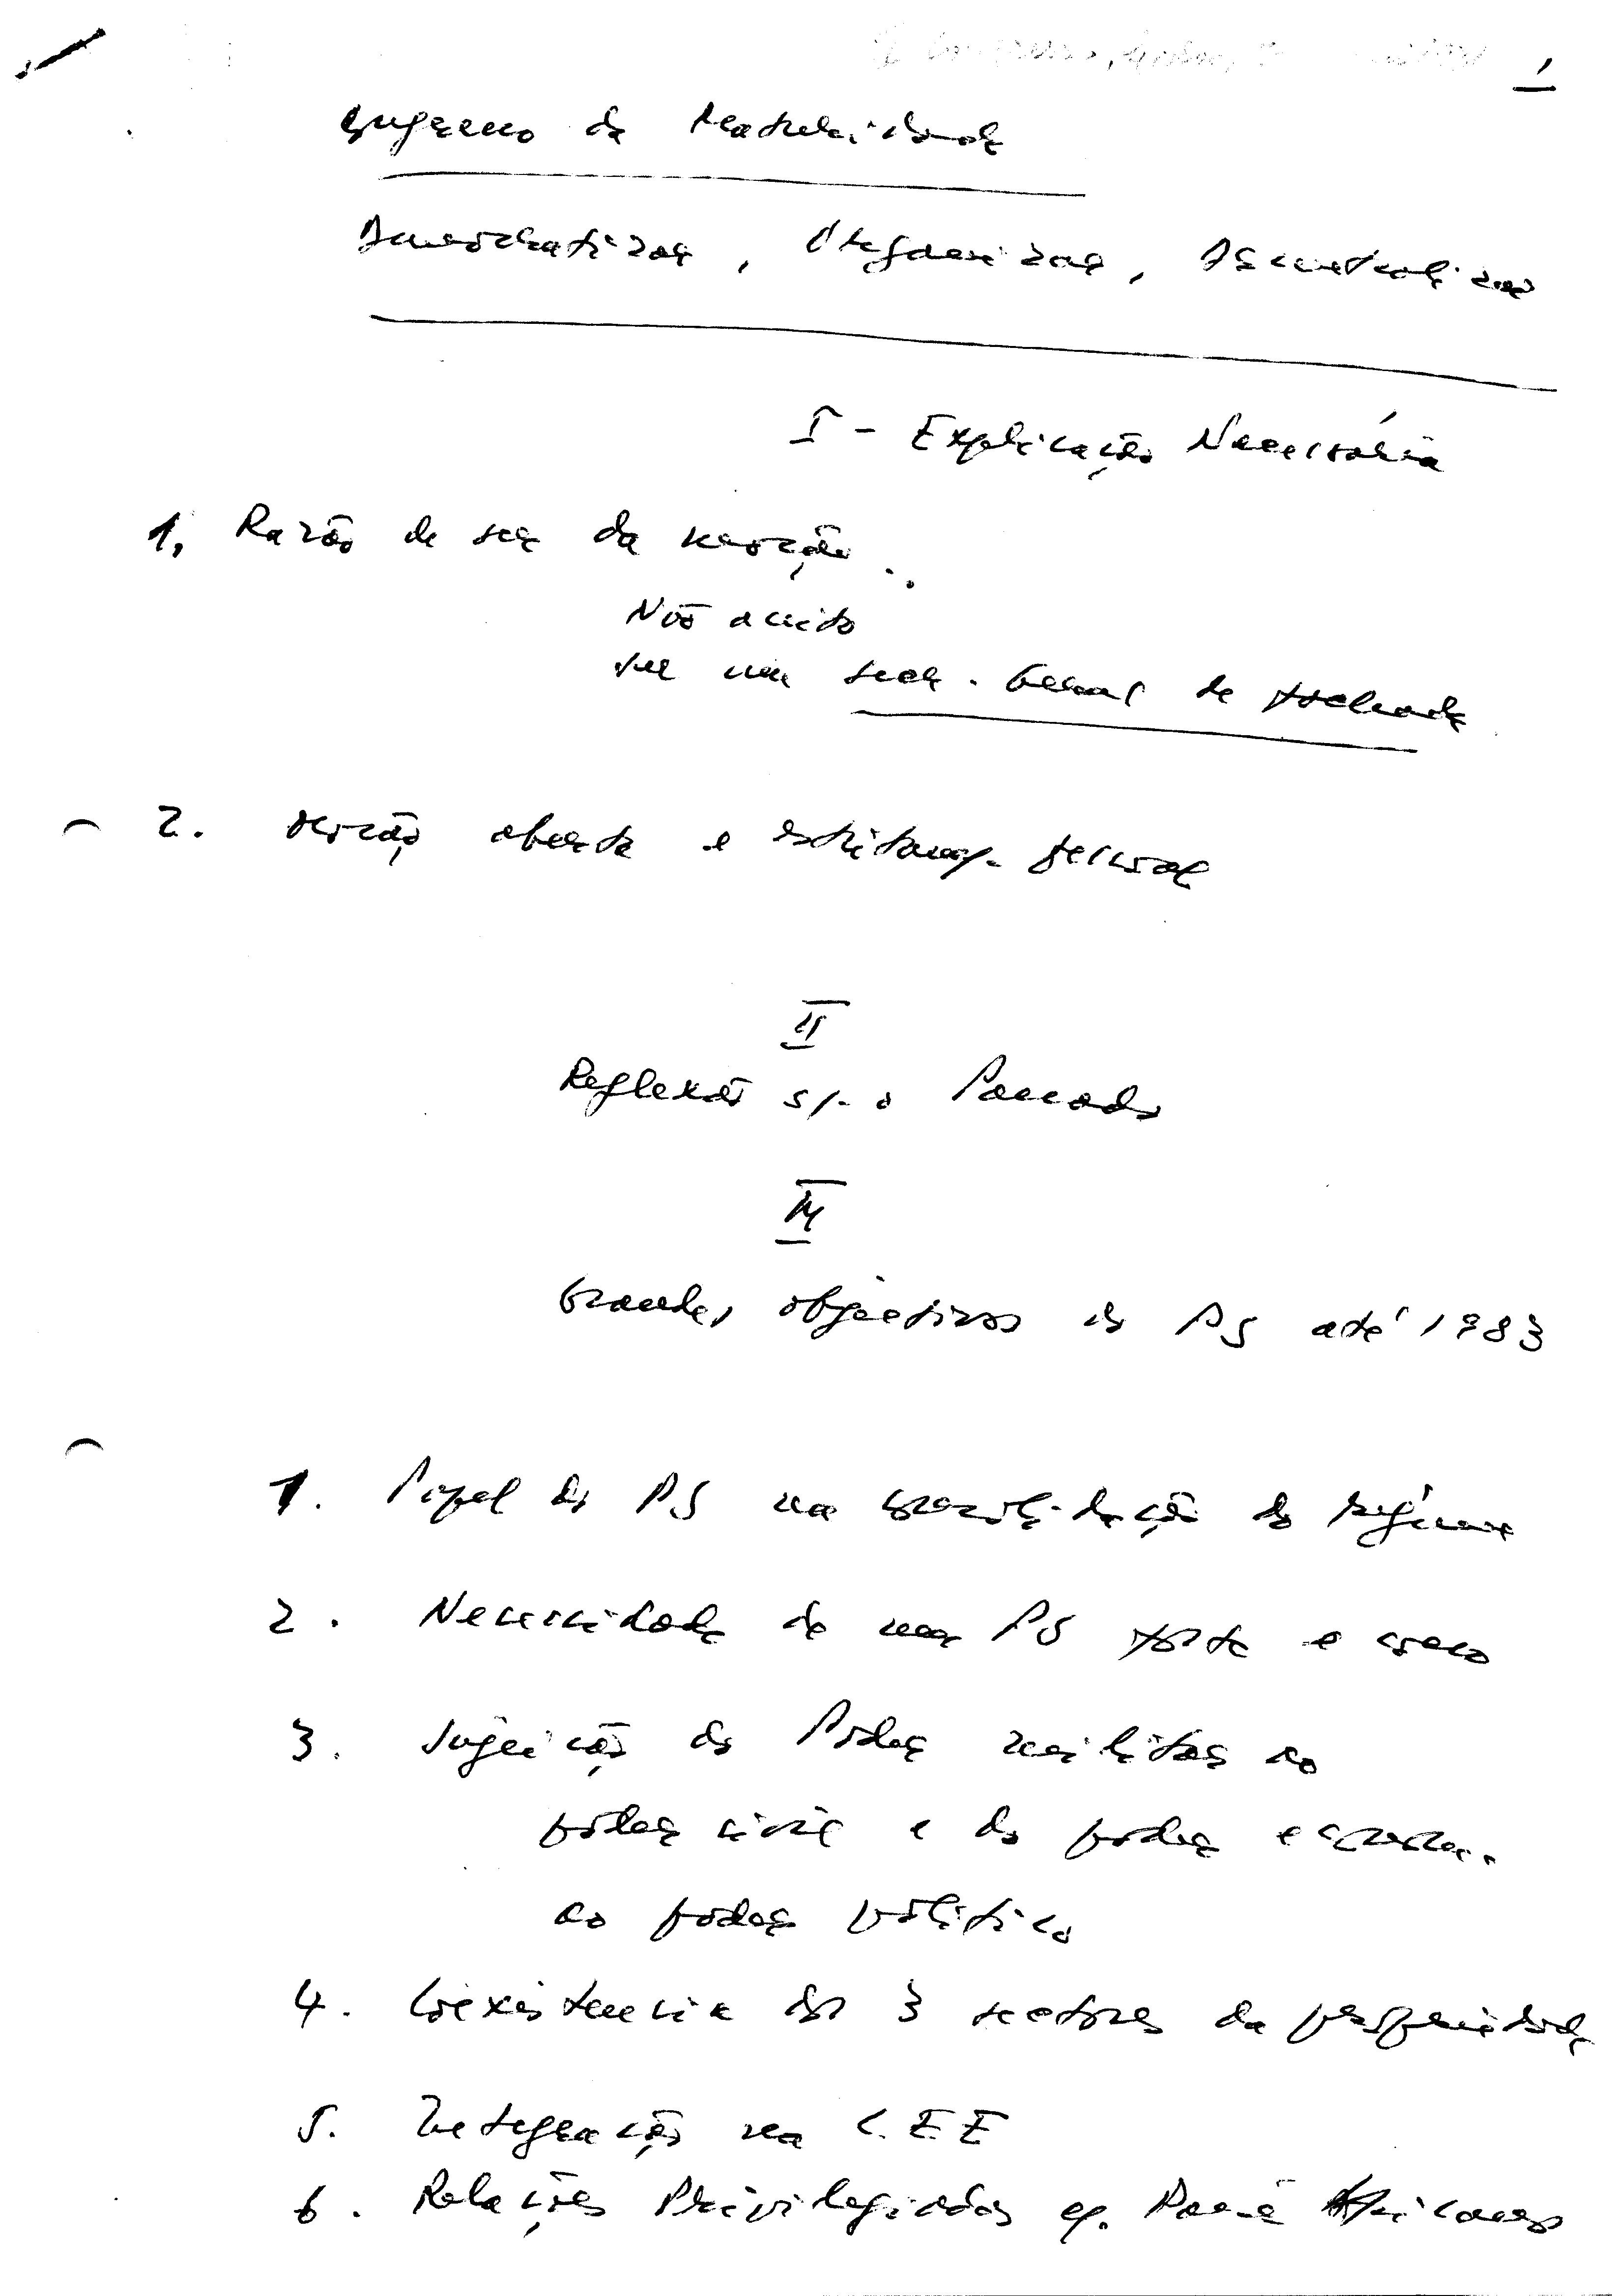 1
Congresso da Maturidade
Democratizar, Organizar, Descentralizar
I - Explicação Necessária
1. Razão de ser da moção.
Não aceito
ser um Secr. Geral de fachada
2. Moção aberta e estritam/. pessoal
II
Reflexão s/. o Passado
III
Grandes objectivos do PS até 1983
1. Papel do PS na consolidação do regime
2. Necessidade de um PS forte e coeso
3. Sujeição do Poder militar ao
poder civil e do poder econom.
ao poder político
4. Coexistencia dos 3 sectores da propriedade
5. Integração na C.E.E
6. Relações Privilegiadas c/. Países Africanos